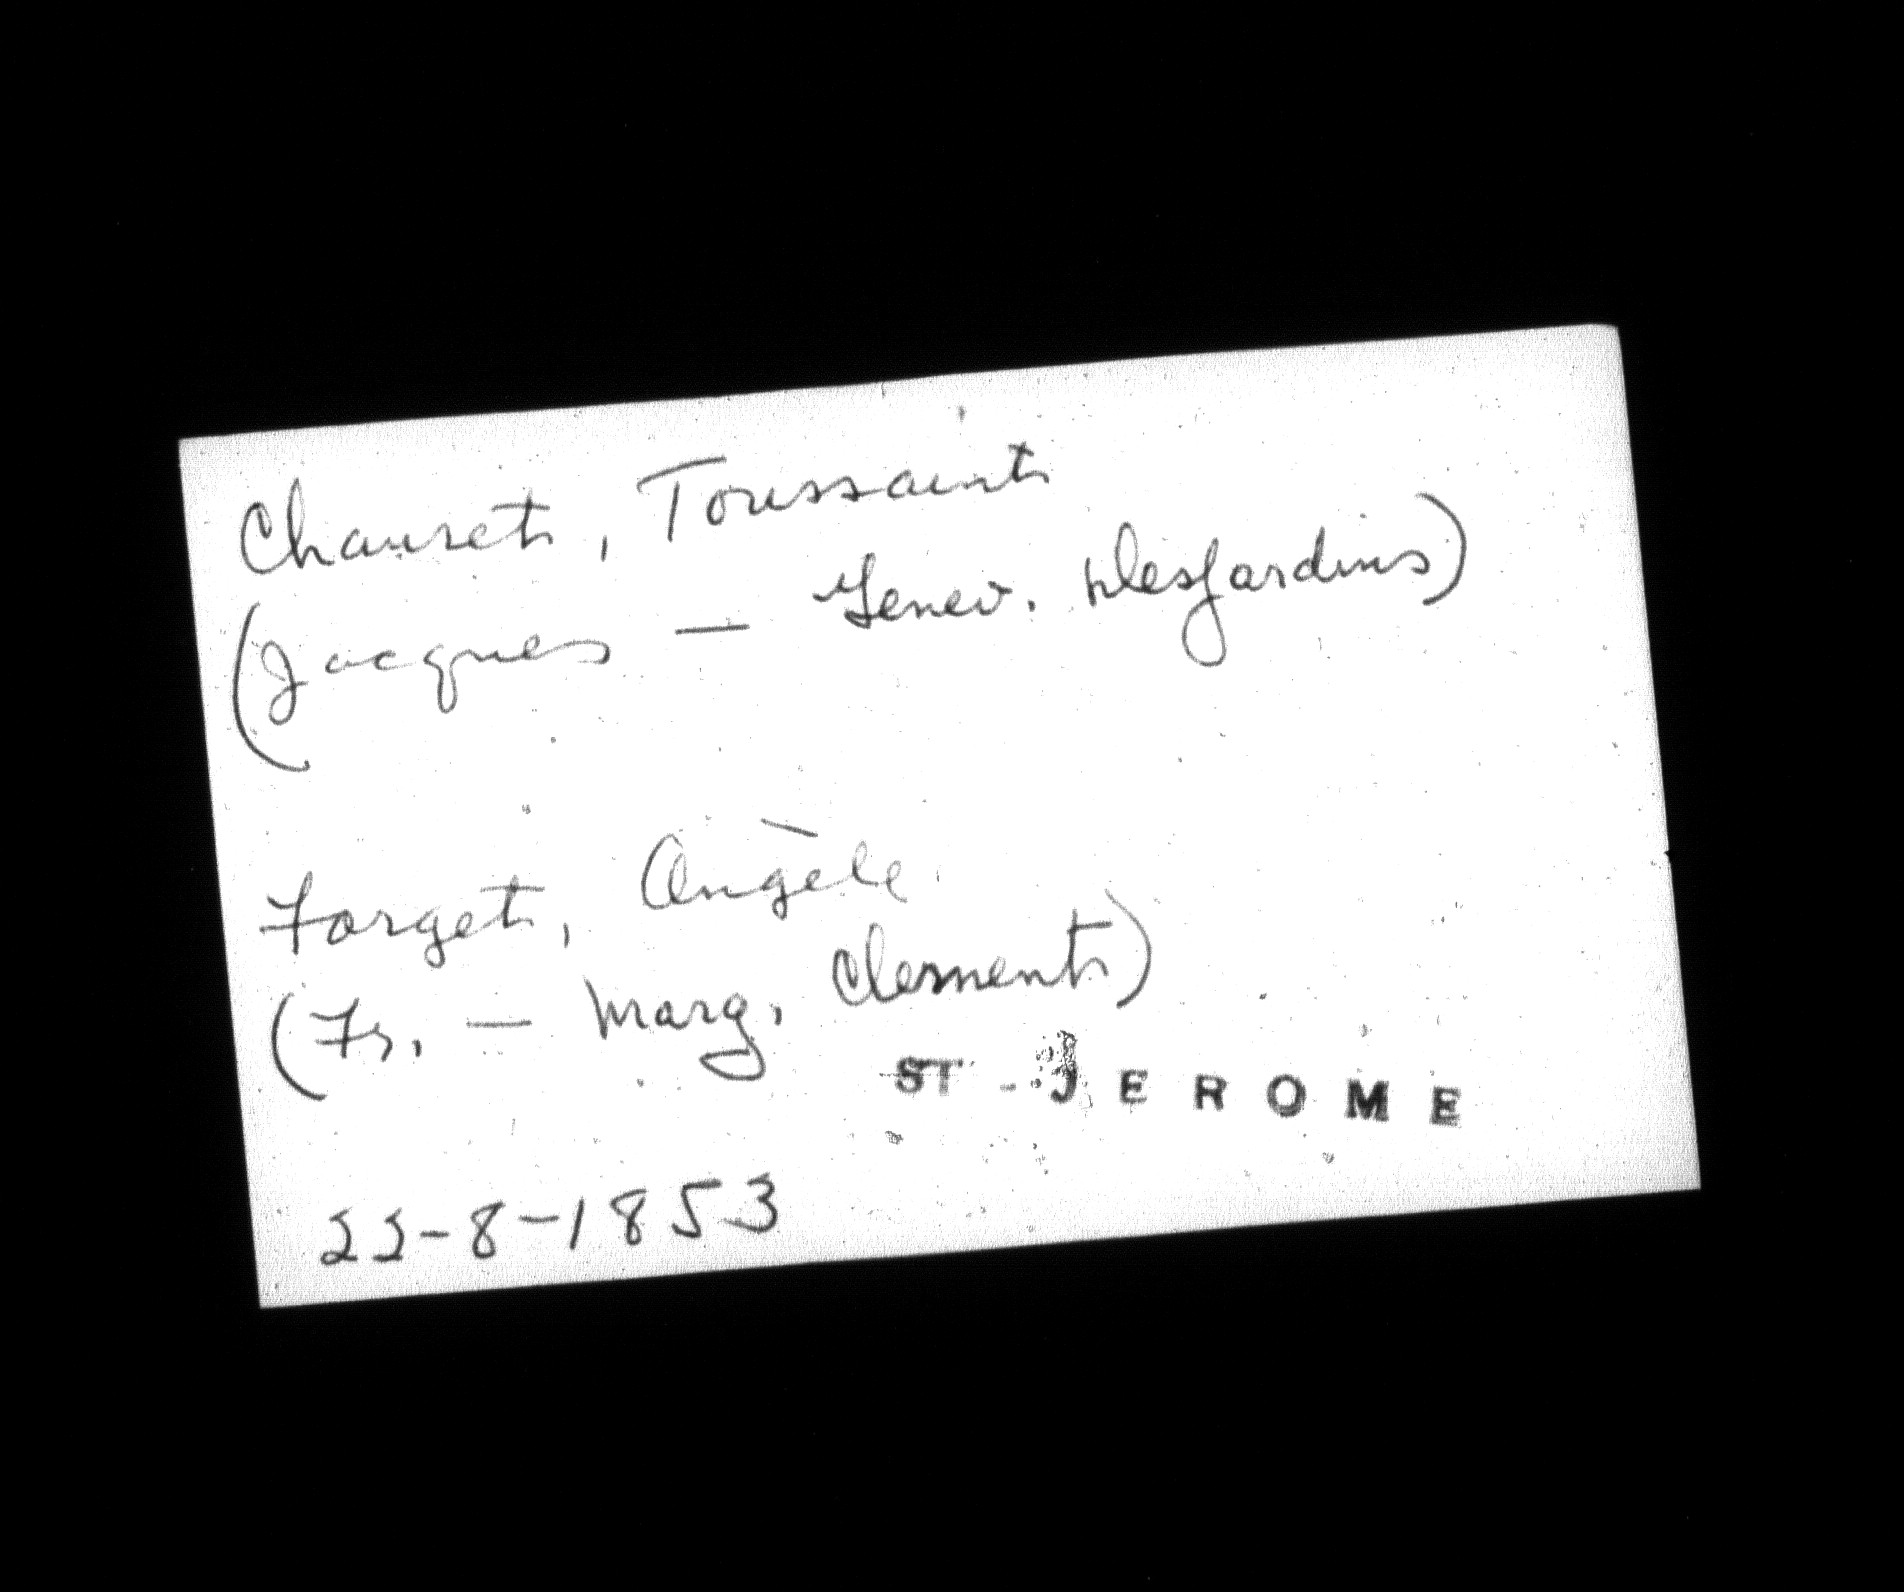 Chauret, Toussaint
(Jacques — Genev. Desjardins)
Forget, Angèle
(Fr. — Marg. Clement)
ST-JEROME
22-8-1853